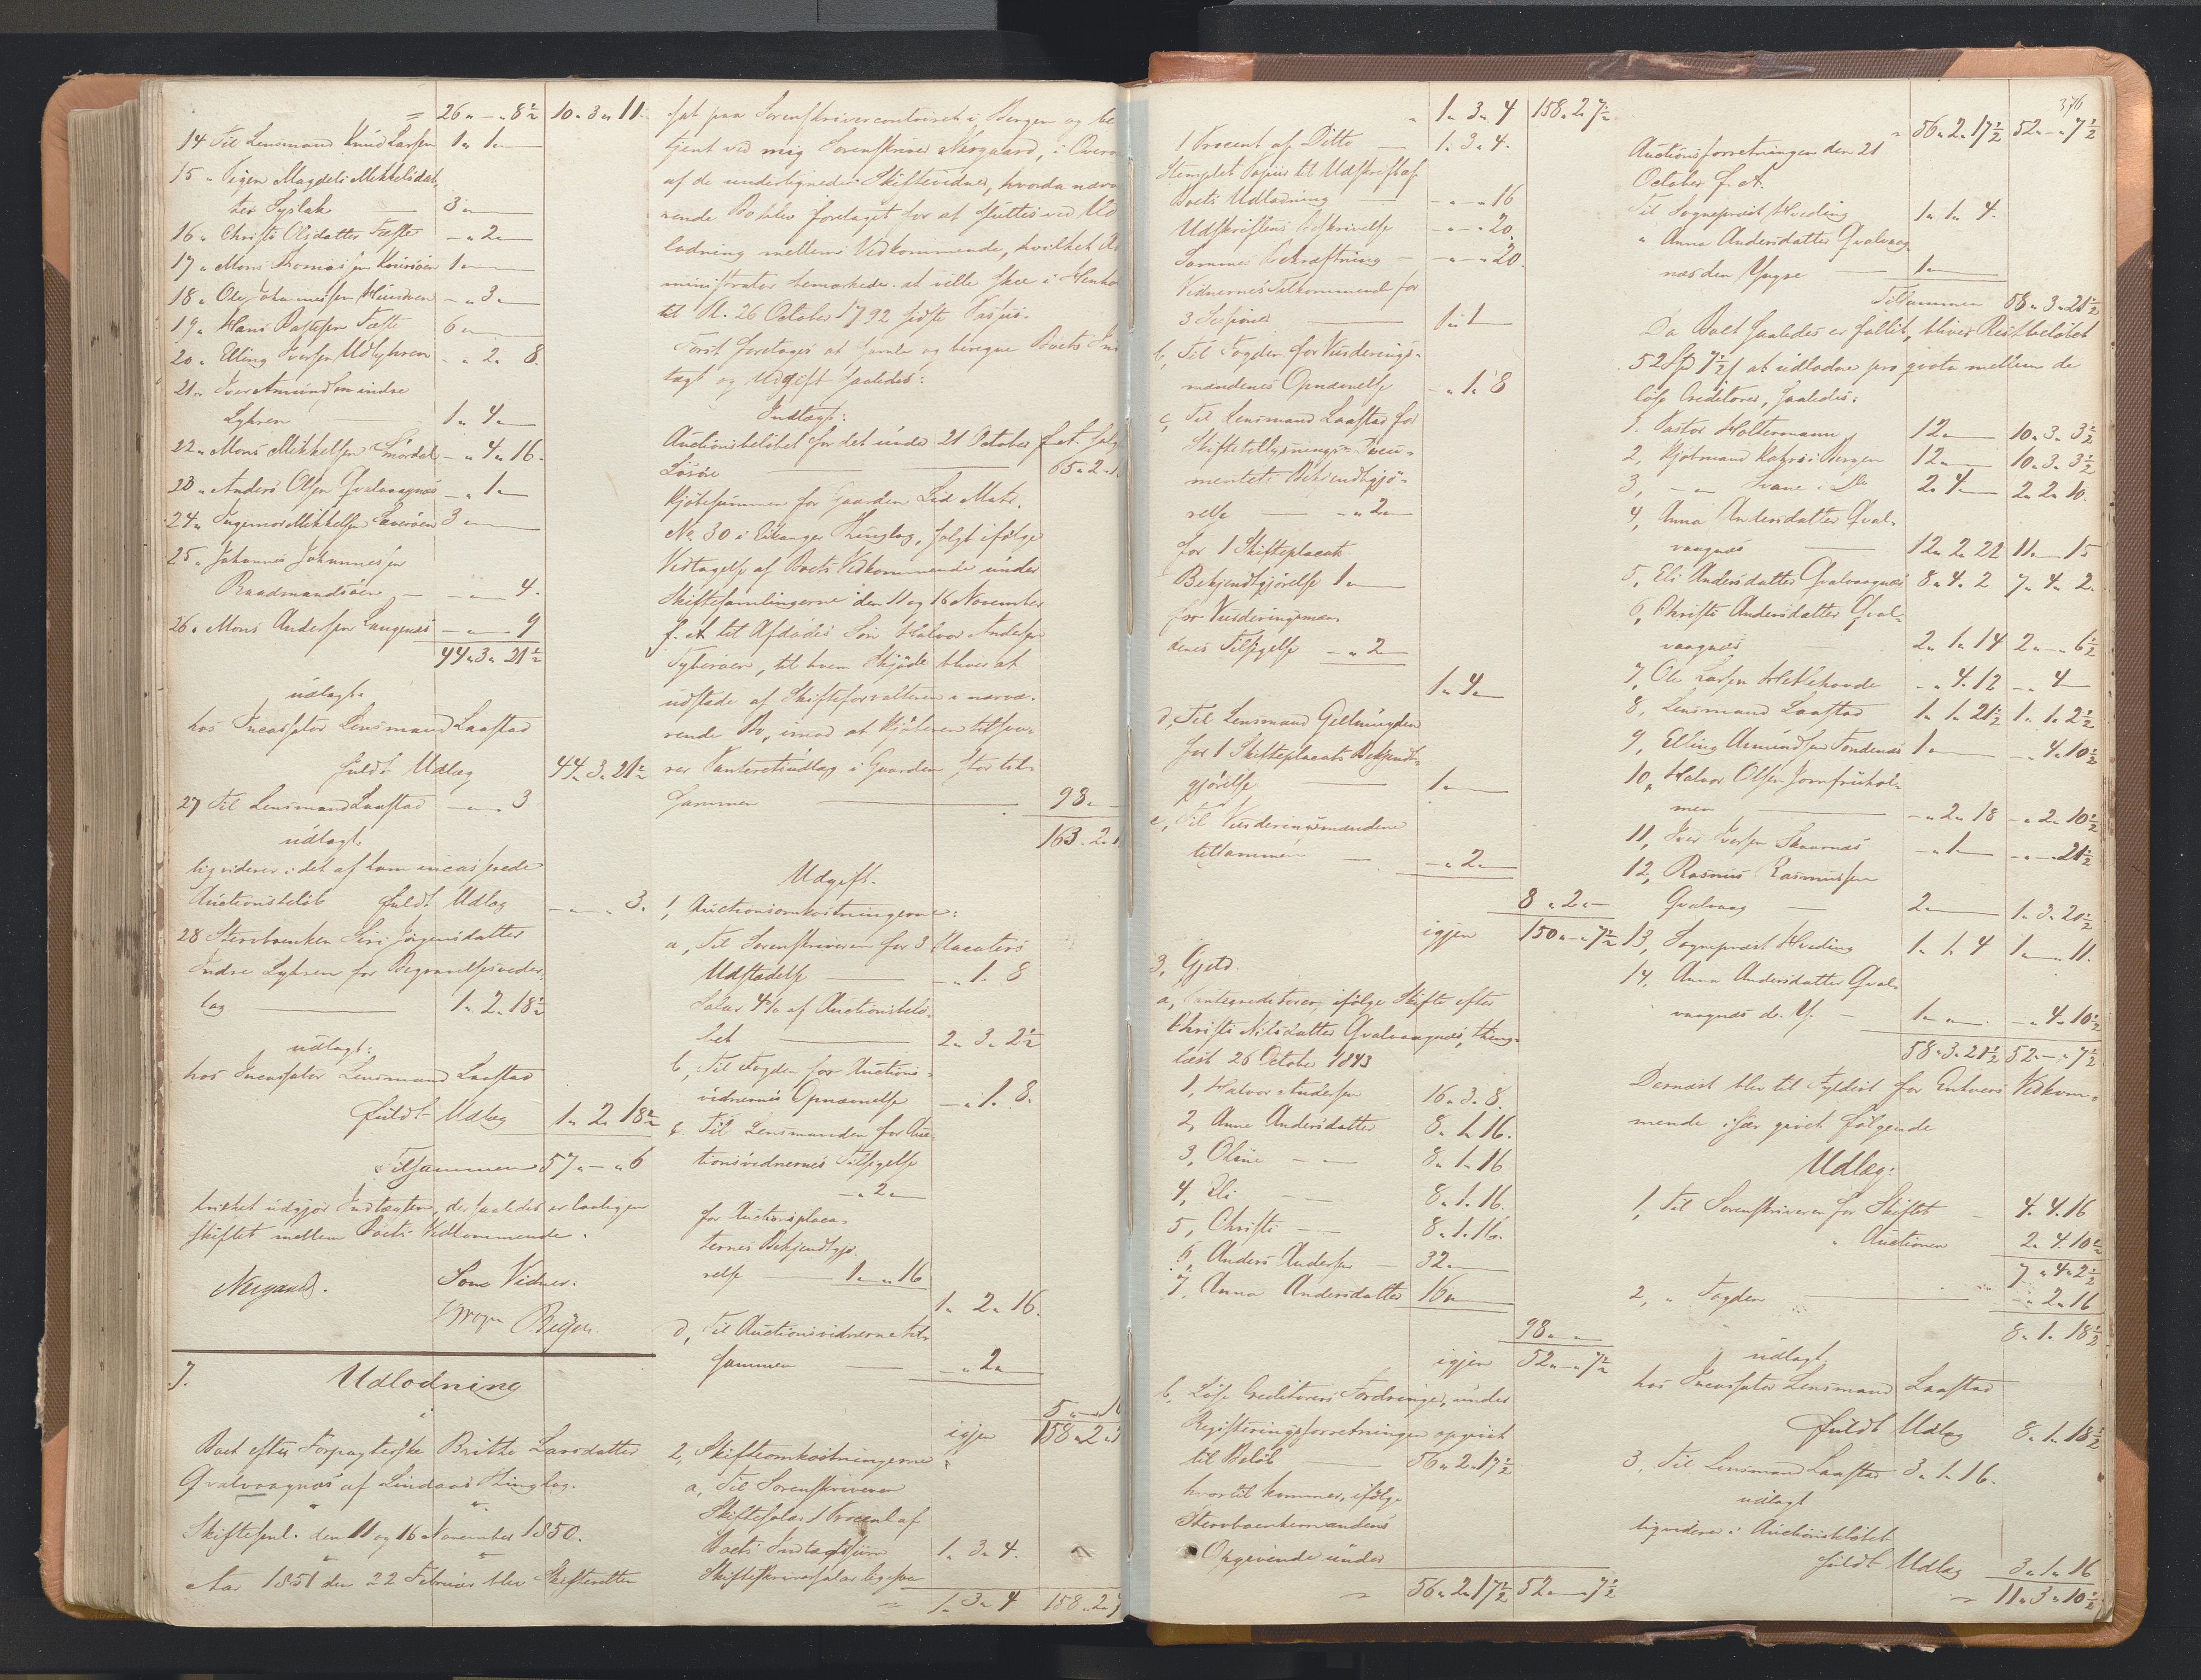 26 " - " 8½ 10 " 3 " 11
14 Til Lensmand Knud Larsen 1 " 1 " -
15 " Pigen Magdeli Mikkelsdat-
ter Syslak 3 " -
16 " Christi Olsdatter Feste - " 2 " -
17 " Mons Thomassen 1 " -
18 " Ole Johannessen Hundven - " 3 " -
19 " Hans Feste 6 " -
20 " Elling Iversen Udlyhren - " 2 " 8.
21 " Iver Amundsen indre
Lyhren 1 " 4 " -
22 " Mons Mikkelsen Smørdal - " 4 " 16.
23 " Anders Olsen Qvalvaagnæs - " 1 " -
24 " Ingemor Mikkelsen 3 " -
25 " Johannes Johannessen
Raadmandsøen - " - " 4.
26 " Mons Andersen Langenæs - " - " 9
44 " 3 " 21½
udlagt.
hos Incassator Lensmand Laastad
fuldt Udlæg 44 " 3 " 21½
27 Til Lensmand Laastad - " - " 3
udlagt
liqviderer i det af ham incasserede
Auctionsbeløb fuldt Udlæg - " - " 3.
28 Stervboenken Siri Jørgensdatter
Indre Lyhren for Begravelsesveder-
lag 1 " 2 " 18½
udlagt:
hos Incassator Lensmand Laastad
fuldt Udlæg 1 " 2 " 18½
Tilsammen 57 " - " 6
hvilket udgjør Indtægten, der saaledes er lovligen
skiftet mellem Boets Vedkommende.
Neergaard. Som Vidner:
Beyer
7. Udlodning
i
Boet efter Forpagterske Britte Larsdatter
Qvalvaagnæs af Lindaas Thinglag.
Skiftesml. den 11 og 16 November 1850.
Aar 1851 den 22 Februar blev Skifteretten
sat paa Sorenskrivercontoiret i Bergen og be
tjent ved mig Sorenskriver Neergaard, i Overv
af de undertegnede Skiftevidner, hvorda nærvæ
rende Bo blev foretaget for at sluttes ved Ud
lodning mellem Vedkommende, hvilket Ad
ministrator bemærkede at ville skee i Henho
til Pl. 26 October 1792 sidste Passus.
Først foretoges at samle og beregne Boets Ind
tægt og Udgift saaledes:
Indtægt:
Auctionsbeløbet for det under 21 October f. A. solg
Løsøre 65 " 2 "
Kjøbesummen for Gaarden Lid Matr.
No 30 i Eikanger Thinglag, solgt ifølge
Vedtagelse af Boets Vedkommende under
Skiftesamlingerne den 11 og 16 November
f. A. til Afdødes Søn Halvor Andersen
, til hvem Skjøde bliver at
udstæde af Skifteforvalteren i nærvæ-
rende Bo, imod at Kjøberen tilsva-
rer Panteretsudlæg i Gaarden stor til-
sammen 98 " -
163 " 2 "
Udgift.
1, Auctionsomkostningerne:
a, Til Sorenskriveren for 3 Placaters
Udstædelse - " 1 " 8
Salair 4% af Auctionsbelø-
bet 2 " 3 " 2½
b, Til Fogden for Auctions-
vidnernes Opnævnelse - " 1 " 8.
c, Til Lensmanden for Auc-
tionsvidnernes Tilsigelse
- " 2 " -
for Auctionsplaca-
ternes Bekjendtgjø-
relse 1 " - " 16
1 " 2 " 16.
d, Til Auctionsvidnerne til-
sammen - " 2 " -
5 " - " 16
igjen 158 " 2 " 7
2, Skifteomkostningerne:
a, Til Sorenskriveren
Skiftesalair 1 Procent af
Boets Indtægtssum 1 " 3 " 4.
Skifteskriversalair ligesaa
1 " 3 " 4 158 " 2 " 7
" 1 " 3 " 4 158 " 2 " 7½
1 Procent af Ditto 1 " 3 " 4.
Stemplet Papiir til Udskrift af
Boets Udlodning - " - " 16
Udskriftens Beskrivelse - " - " 20.
Sammes Bekræftning - " - " 20.
Vidnernes Tilkommende for
3 Sessioner 1 " 1
b, Til Fogden for Vurderings-
mændenes Opnævnelse - " 1 " 8
c, Til Lensmand Laastad for
Skiftetillysnings-Docu-
mentets Bekjendtgjø-
relse - " 2 " -
for 1 Skifteplacats
Bekjendtgjørelse 1 " -
for Vurderingsmæn-
denes Tilsigelse - " 2 " -
1 " 4 " -
d, Til Lensmand Gellmuyden
for 1 Skifteplacats Bekjendt-
gjørelse 1 " -
e, Til Vurderingsmændene
tilsammen - " 2 " -
8 " 2 " -
igjen 150 " - " 7½
3, Gjeld.
a, Pantecreditorer, ifølge Skifte efter
Christi Nilsdatter Qvalvaagnæs, thing-
læst 26 October 1843
1, Halvor Andersen 16 " 3 " 8.
2, Anne Andersdatter 8 " 1 " 16.
3, Oline - - 8 " 1 " 16
4, Eli - - 8 " 1 " 16.
5, Christi - 8 " 1 " 16.
6, Anders Andersen 32 " -
7, Anna Andersdatter 16 " -
98 " -
igjen 52 " - " 7½
b, Løse Creditorers Fordringer, under
Registreringsforretningen opgivet
til Beløb 56 " 2 " 17½
hvortil kommer, ifølge
Stervboenkemandens
Opgivende under
56 " 2 " 17½ 52 " - " 7½
376
" 56 " 2 " 17½ 52 " - " 7½
Auctionsforretningen den 21
October f. A.
Til Sognepræst Hveding 1 " 1 " 4.
" Anna Andersdatter Qvalvaag-
næs den Yngre 1 " -
Tilsammen 58 " 3 " 21½
Da Boet saaledes er fallit, bliver Restbeløbet
52 Spd 7½ s at udlodne pro qvota mellem de
løse Creditorer, saaledes:
1. Pastor Holtermann 12 " - 10 " 3 " 3½
2, Kjøbmand i Bergen 12 " - 10 " 3 " 3½
3, - " - Svane i Do 2 " 4 " - 2 " 2 " 10.
4, Anna Andersdatter Qval-
vaagnæs 12 " 2 " 22 11 " - " 15
5, Eli Andersdatter Qvalvaagnæs 8 " 4 " 2 7 " 4 " 2.
6, Christi Andersdatter Qval-
vaagnæs 2 " 1 " 14 2 " - " 6½
7, Ole Larsen - " 4 " 12 - " 4 " -
8, Lensmand Laastad 1 " 1 " 21½ 1 " 1 " 2½
9, Elling Amundsen Tondenæs 1 " - - " 4 " 10½
10, Halvor Olsen Jomfruhol-
men - " 2 " 18 - " 2 " 10½
11, Iver Iversen - " 1 " - - " - " 21½
12, Rasmus Rasmussen
Qvalvaag 2 " - 1 " 3 " 20½
13, Sognepræst Hveding 1 " 1 " 4 1 " - " 11.
14, Anna Andersdatter Qval-
vaagnæs d. Y. 1 " - - " 4 " 10½
58 " 3 " 21½ 52 " - " 7½
Dernæst blev til Fyldest for Enhvers Vedkom-
mende især gjort følgende
Udlæg:
1, Til Sorenskriveren for Skiftet 4 " 4 " 16
" Auctionen 2 " 4 " 10½
7 " 4 " 2½
2, " Fogden - " 2 " 16
8 " 1 " 18½
udlagt
hos Incassator Lensmand Laastad
fuldt Udlæg 8 " 1 " 18½
3, Til Lensmand Laastad 3 " 1 " 16.
udlagt
liqviderer i Auctionsbeløbet
fuldt Udlæg 3 " 1 " 16
11 " 3 " 10½